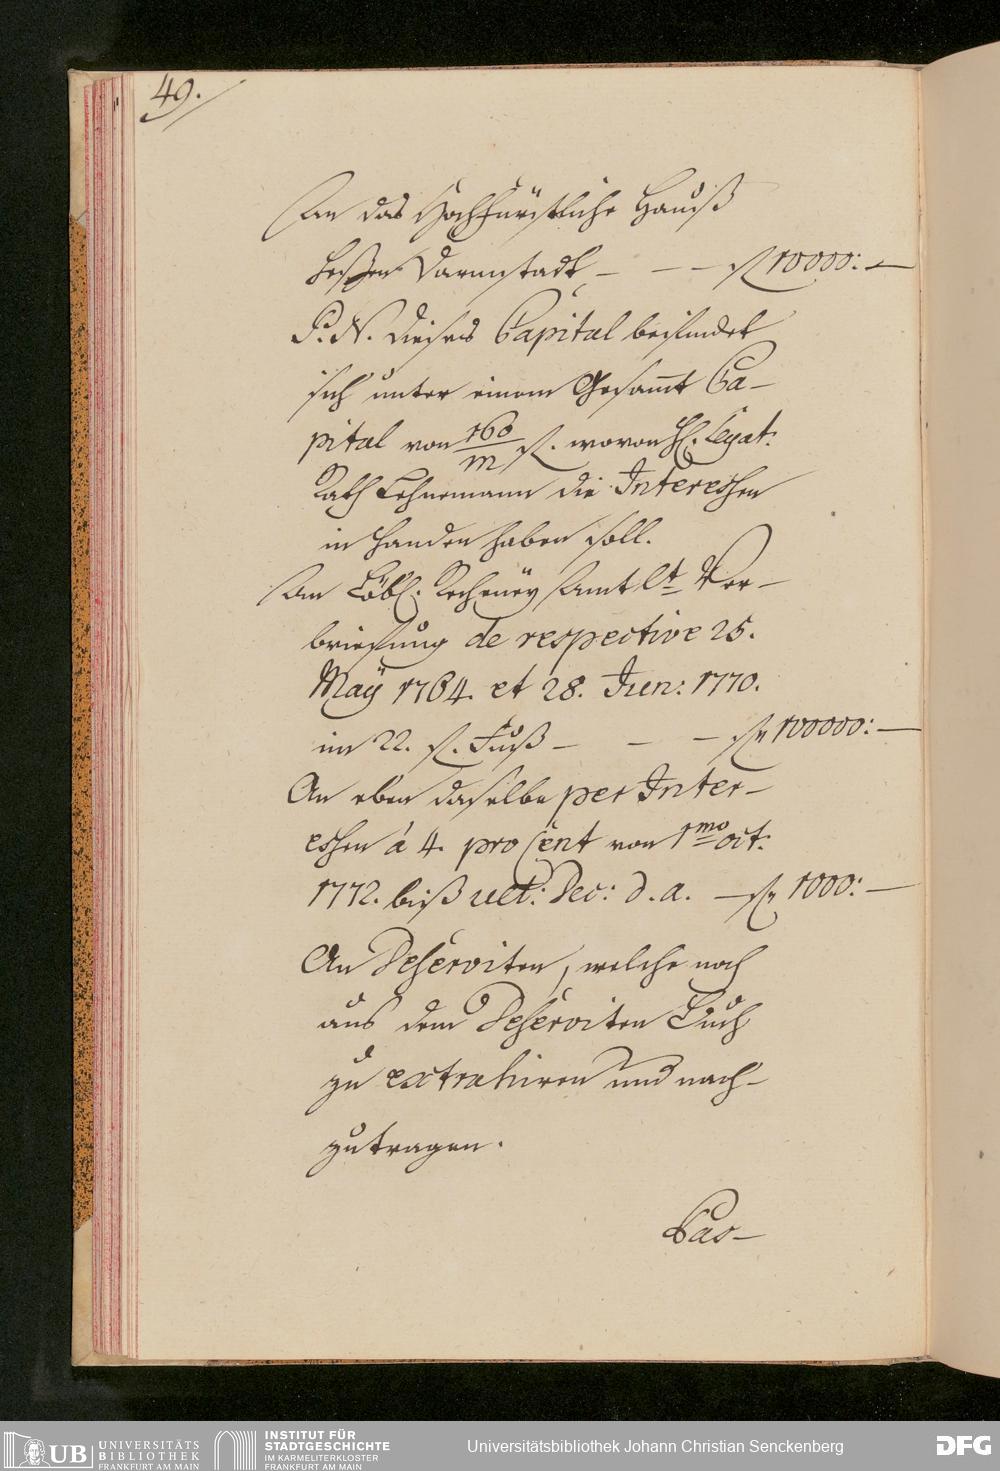 49.
An das Hochfürstliche Hauß
Heßen Darmstadt – – – fl 10000: –
P. N. dieses Capital befindet
sich unter einem Gesamt Ca-
pital von 160/m fl. wovon H. Legat:
Rath Lehnemann die Interessen
in Handen haben soll.
An Löbl. Recheney Amt lt Ver-
briefung de respective 25.
Maÿ 1764. et 28. Jun: 1770.
im 22. fl. Fuß – – – fl 100000: –
An eben daselbe per Inter-
essen á 4. pro Cent von 1mo oct:
1772. biß ult: Dec: d. a. – fl 1000: –
An Deserviten, welche noch
aus dem Deserviten Buch
zu extrahiren und nach-
zutragen.
Pas-
UB UNIVERSITÄTS
BIBLIOTHEK
FRANKFURT AM MAIN
INSTITUT FÜR
STADTGESCHICHTE
IM KARMELITERKLOSTER
FRANKFURT AM MAIN
Universitätsbibliothek Johann Christian Senckenberg
DFG